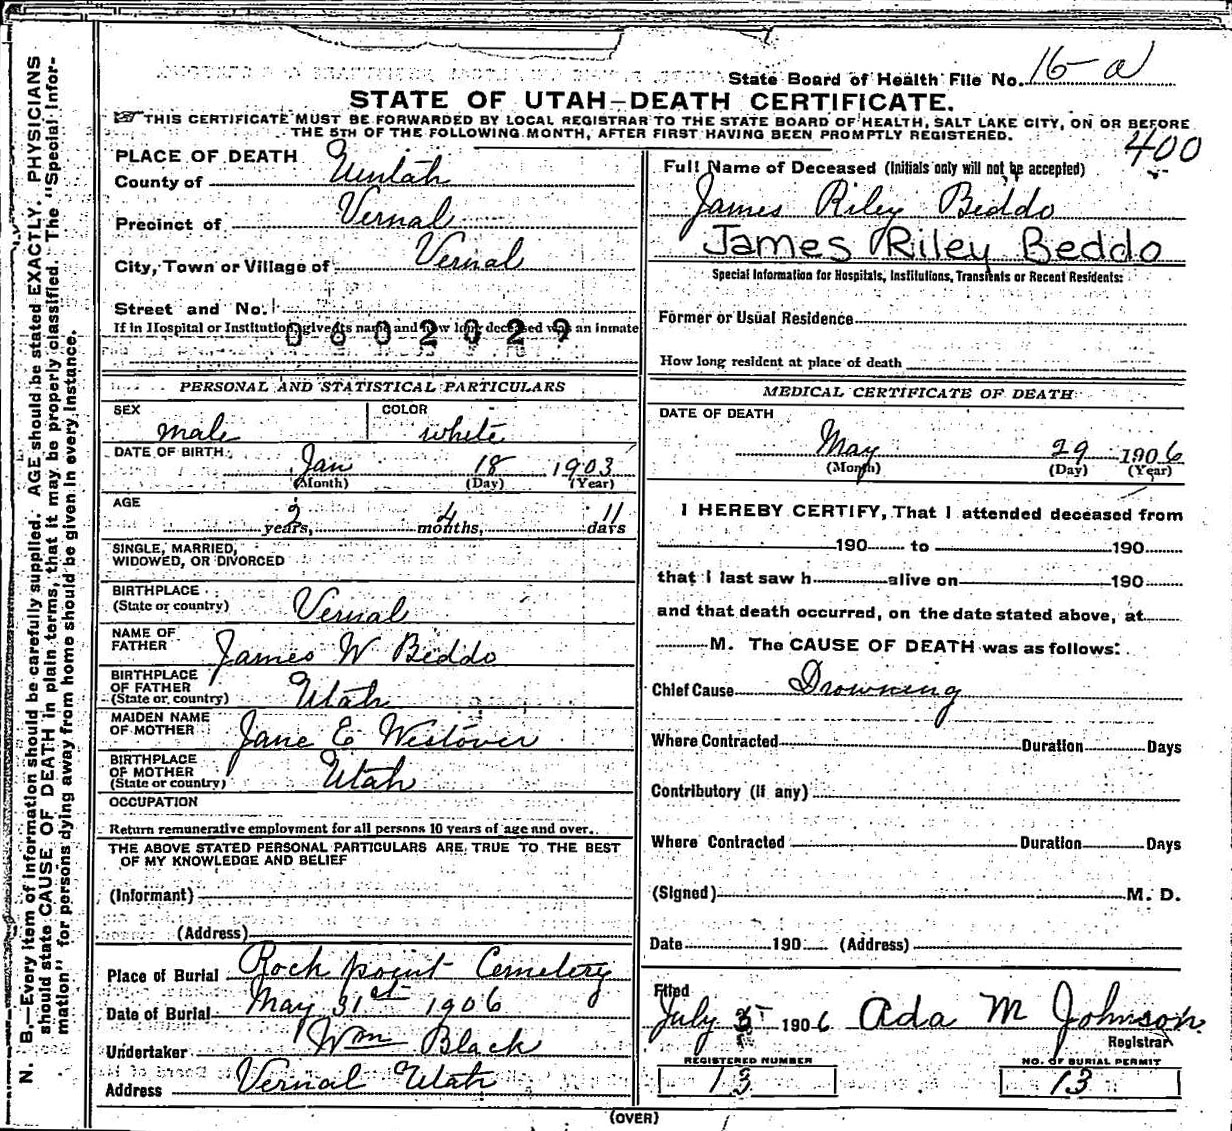 State Board of Health File No. 16-a
STATE OF UTAH—DEATH CERTIFICATE.
THIS CERTIFICATE MUST BE FORWARDED BY LOCAL REGISTRAR TO THE STATE BOARD OF HEALTH, SALT LAKE CITY, ON OR BEFORE
THE 5TH OF THE FOLLOWING MONTH, AFTER FIRST HAVING BEEN PROMPTLY REGISTERED.
400
PLACE OF DEATH
County of Uintah
Precinct of Vernal
City, Town or Village of Vernal
Street and No.
If in Hospital or Institution, give its name and how long deceased was an inmate
0602029
PERSONAL AND STATISTICAL PARTICULARS
SEX male COLOR white
DATE OF BIRTH
Jan 18 1903
(Month) (Day) (Year)
AGE
2 years, 4 months, 11 days
SINGLE, MARRIED,
WIDOWED, OR DIVORCED
BIRTHPLACE
(State or country) Vernal
NAME OF
FATHER James W Beddo
BIRTHPLACE
OF FATHER
(State or country) Utah
MAIDEN NAME
OF MOTHER Jane E Westover
BIRTHPLACE
OF MOTHER
(State or country) Utah
OCCUPATION
Return remunerative employment for all persons 10 years of age and over.
THE ABOVE STATED PERSONAL PARTICULARS ARE TRUE TO THE BEST
OF MY KNOWLEDGE AND BELIEF
(Informant)
(Address)
Place of Burial Rock point Cemetery
Date of Burial May 31st 1906
Undertaker Wm Black
Address Vernal Utah
Full Name of Deceased (Initials only will not be accepted)
James Riley Beddo
James Riley Beddo
Special Information for Hospitals, Institutions, Transients or Recent Residents:
Former or Usual Residence
How long resident at place of death
MEDICAL CERTIFICATE OF DEATH
DATE OF DEATH
May 29 1906
(Month) (Day) (Year)
I HEREBY CERTIFY, That I attended deceased from
190 to 190
that I last saw h alive on 190
and that death occurred, on the date stated above, at
M. The CAUSE OF DEATH was as follows:
Chief Cause Drowning
Where Contracted Duration Days
Contributory (if any)
Where Contracted Duration Days
(Signed) M. D.
Date 190 (Address)
Filed
July 1906 Ada M Johnson
Registrar
REGISTERED NUMBER
13
NO. OF BURIAL PERMIT
13
(OVER)
N. B.—Every item of information should be carefully supplied. AGE should be stated EXACTLY. PHYSICIANS
should state CAUSE OF DEATH in plain terms, that it may be properly classified. The "Special Infor-
mation" for persons dying away from home should be given in every instance.